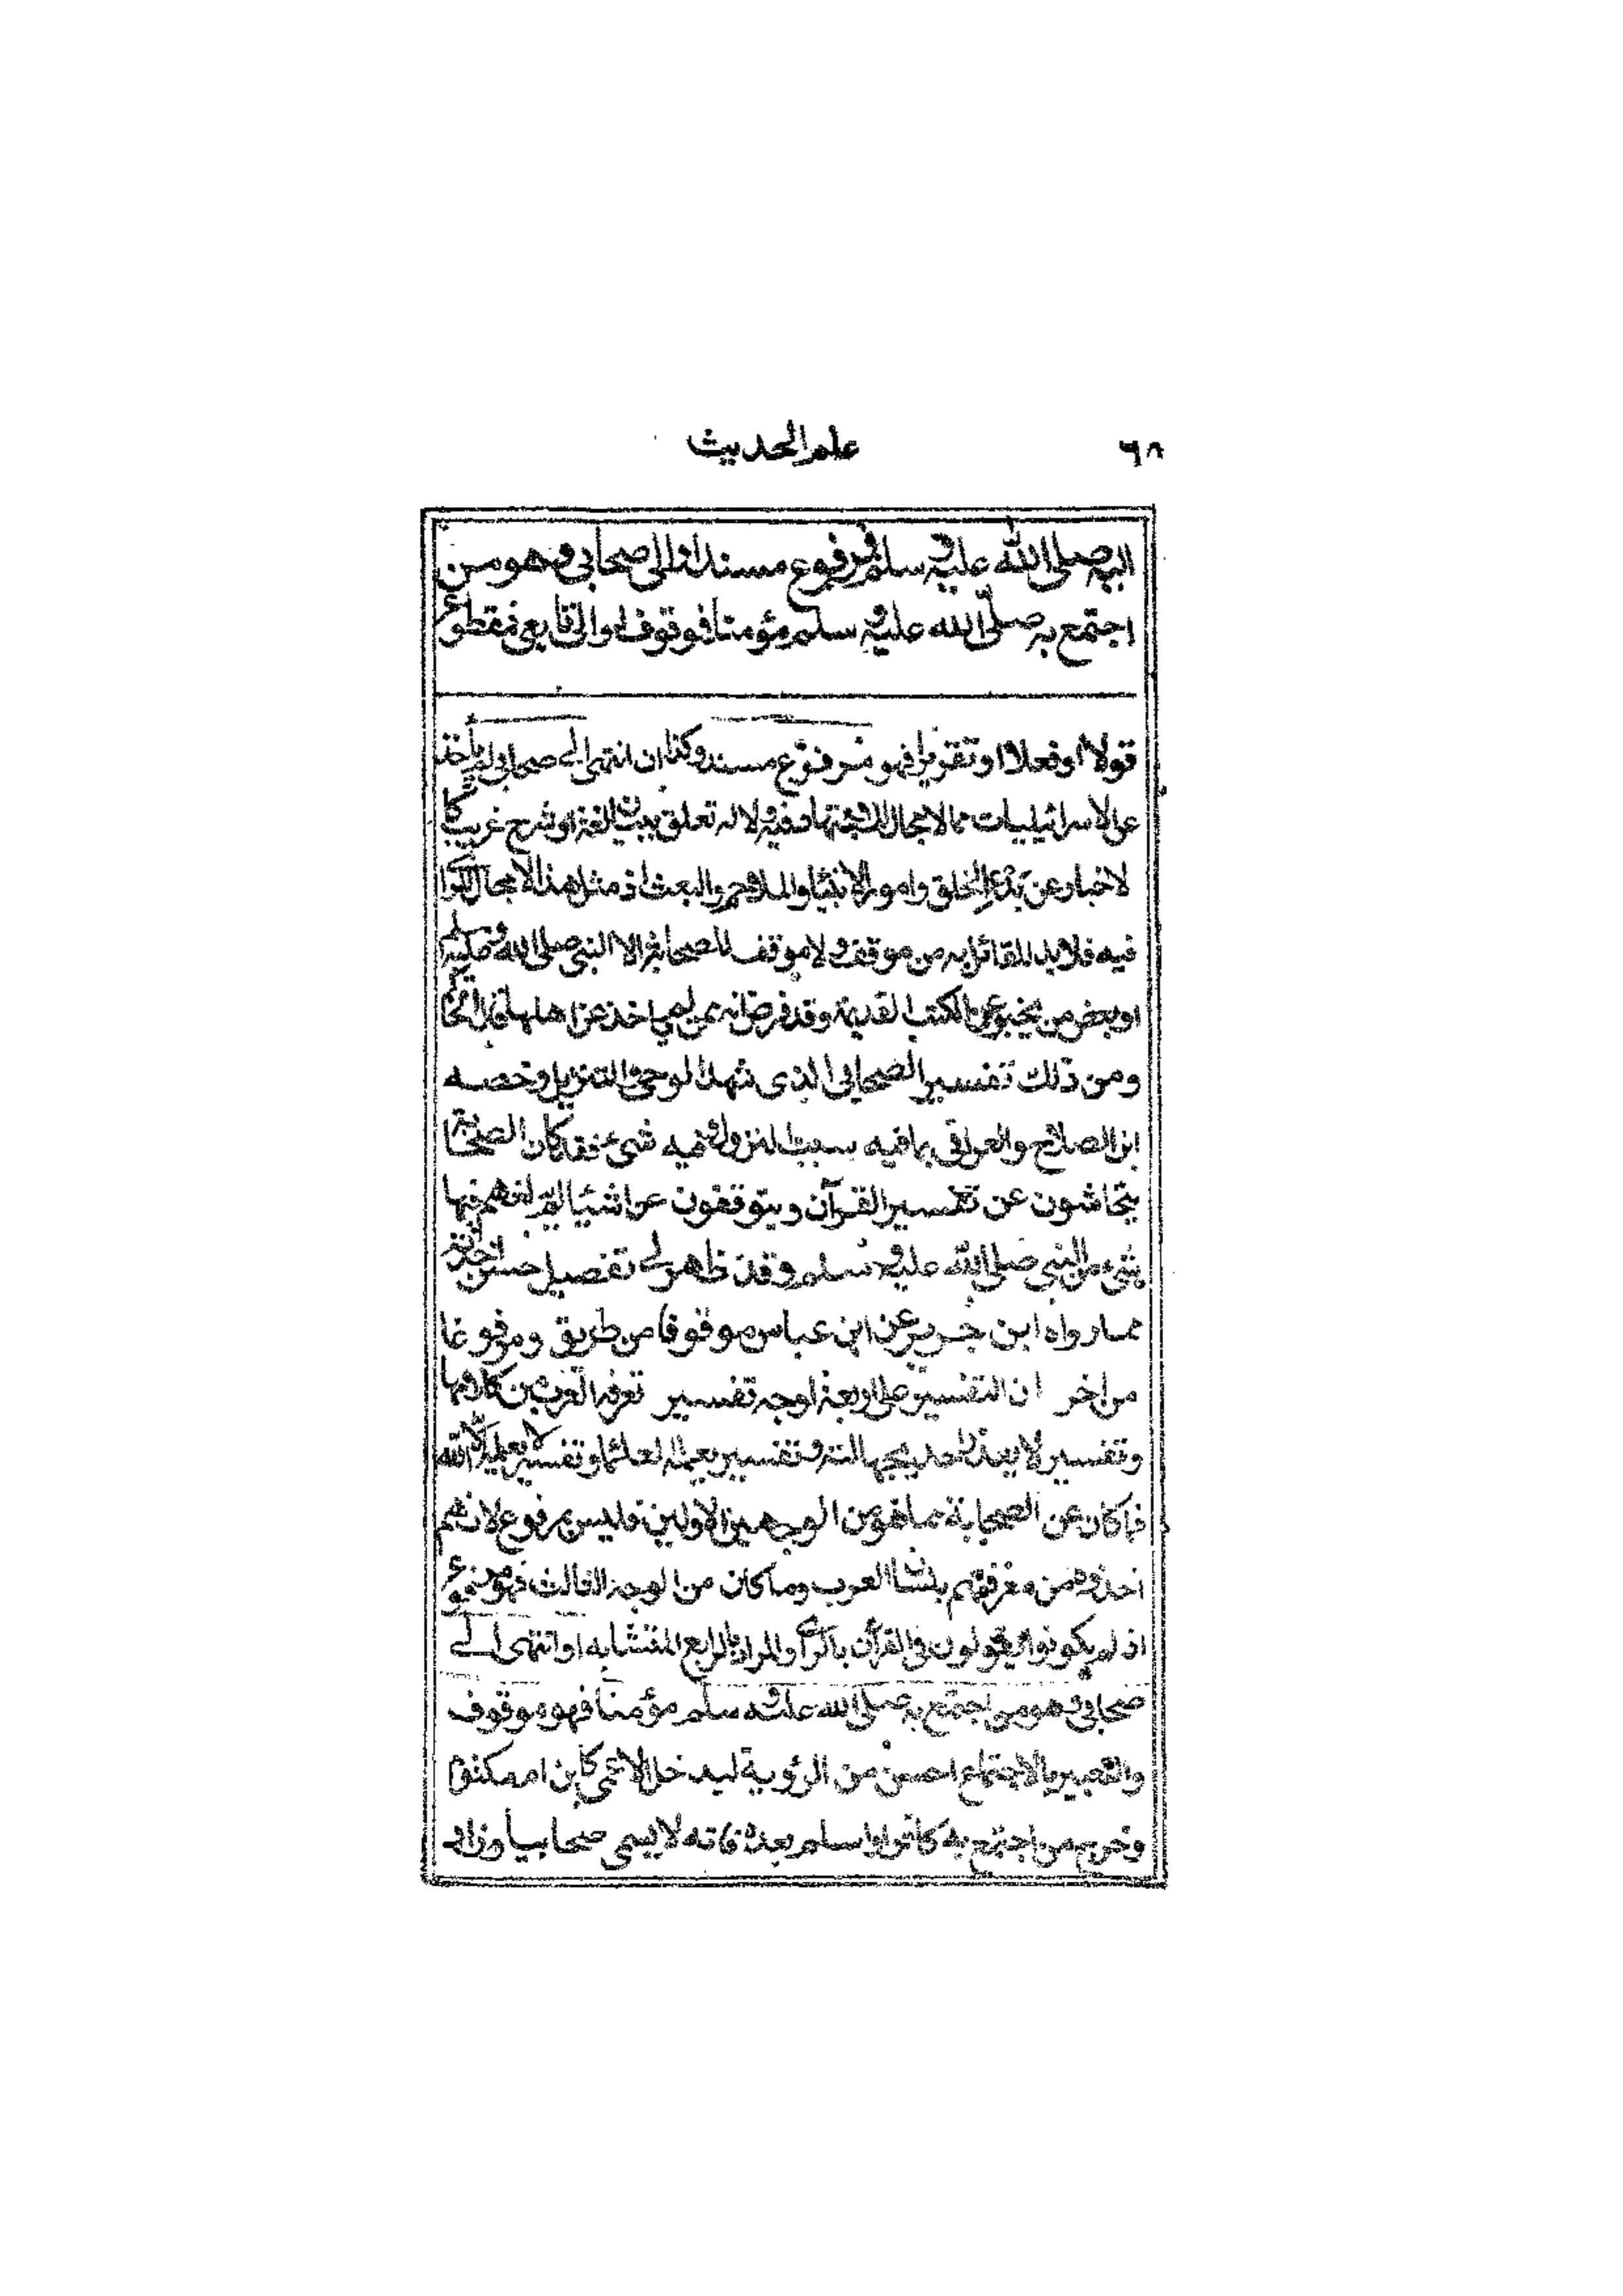 ٦٨
علم الحديث
اليه صلى الله عليه وسلم فمرفوع مسند او الى صحابي وهو من
اجتمع به صلى الله عليه وسلم مؤمنا فموقوف او الى تابعي فمقطوع
قولا او فعلا او تقريرا فهو مرفوع مسند وكذا ان انتهى الے صحابي لم يأخذ
عن الاسرائيليات مما لا مجال للاجتهاد فيه ولا له تعلق ببيان لغة او شرح غريب كا
لاخبار عن بدء الخلق وامور الانبياء والملاحم والبعث اذ مثل هذا لا مجال للرأ
فيه فلا بد للقائل به من موقف ولا موقف للصحابة الا النبي صلى الله عليه وسلم
او بعض من يخبر عن الكتب القديمة وقد فرض انه ممن لم ياخذ عن اهلها
ومن ذلك تفسير الصحابي الذى شهد الوحى والتنزيل وخصه
ابن الصلاح والعراقي بما فيه سبب النزول وفيه شئ فقد كان الصحابة
يتحاشون عن تفسير القرآن ويتوقفون عن اشياء لم يبلغهم فيها
شئ من النبي صلى الله عليه وسلم وقد ظهر لے تفصيل حسن اخذته
مما رواه ابن جرير عن ابن عباس موقوفا من طريق ومرفوعا
من اخر ان التفسير على اربعة اوجه تفسير تعرفه العرب من كلامها
وتفسير لا يعذر احد بجهالته وتفسير يعلمه العلماء وتفسير لا يعلمه الا الله
فما كان عن الصحابة مما هو من الوجهين الاولين فليس بمرفوع لانهم
اخذوه من معرفتهم بلسان العرب وما كان من الوجه الثالث فهو مرفوع
اذ لم يكونوا يقولون في القرآن بالرأي والمراد بالرابع المتشابه او انتهى الے
صحابي وهو من اجتمع به صلى الله عليه وسلم مؤمنا فهو موقوف
والتعبير بالاجتماع احسن من الرؤية ليدخل الاعمى كابن ام مكتوم
وخرج من اجتمع به كافرا واسلم بعد وفاته لا يسمى صحابيا وزاد